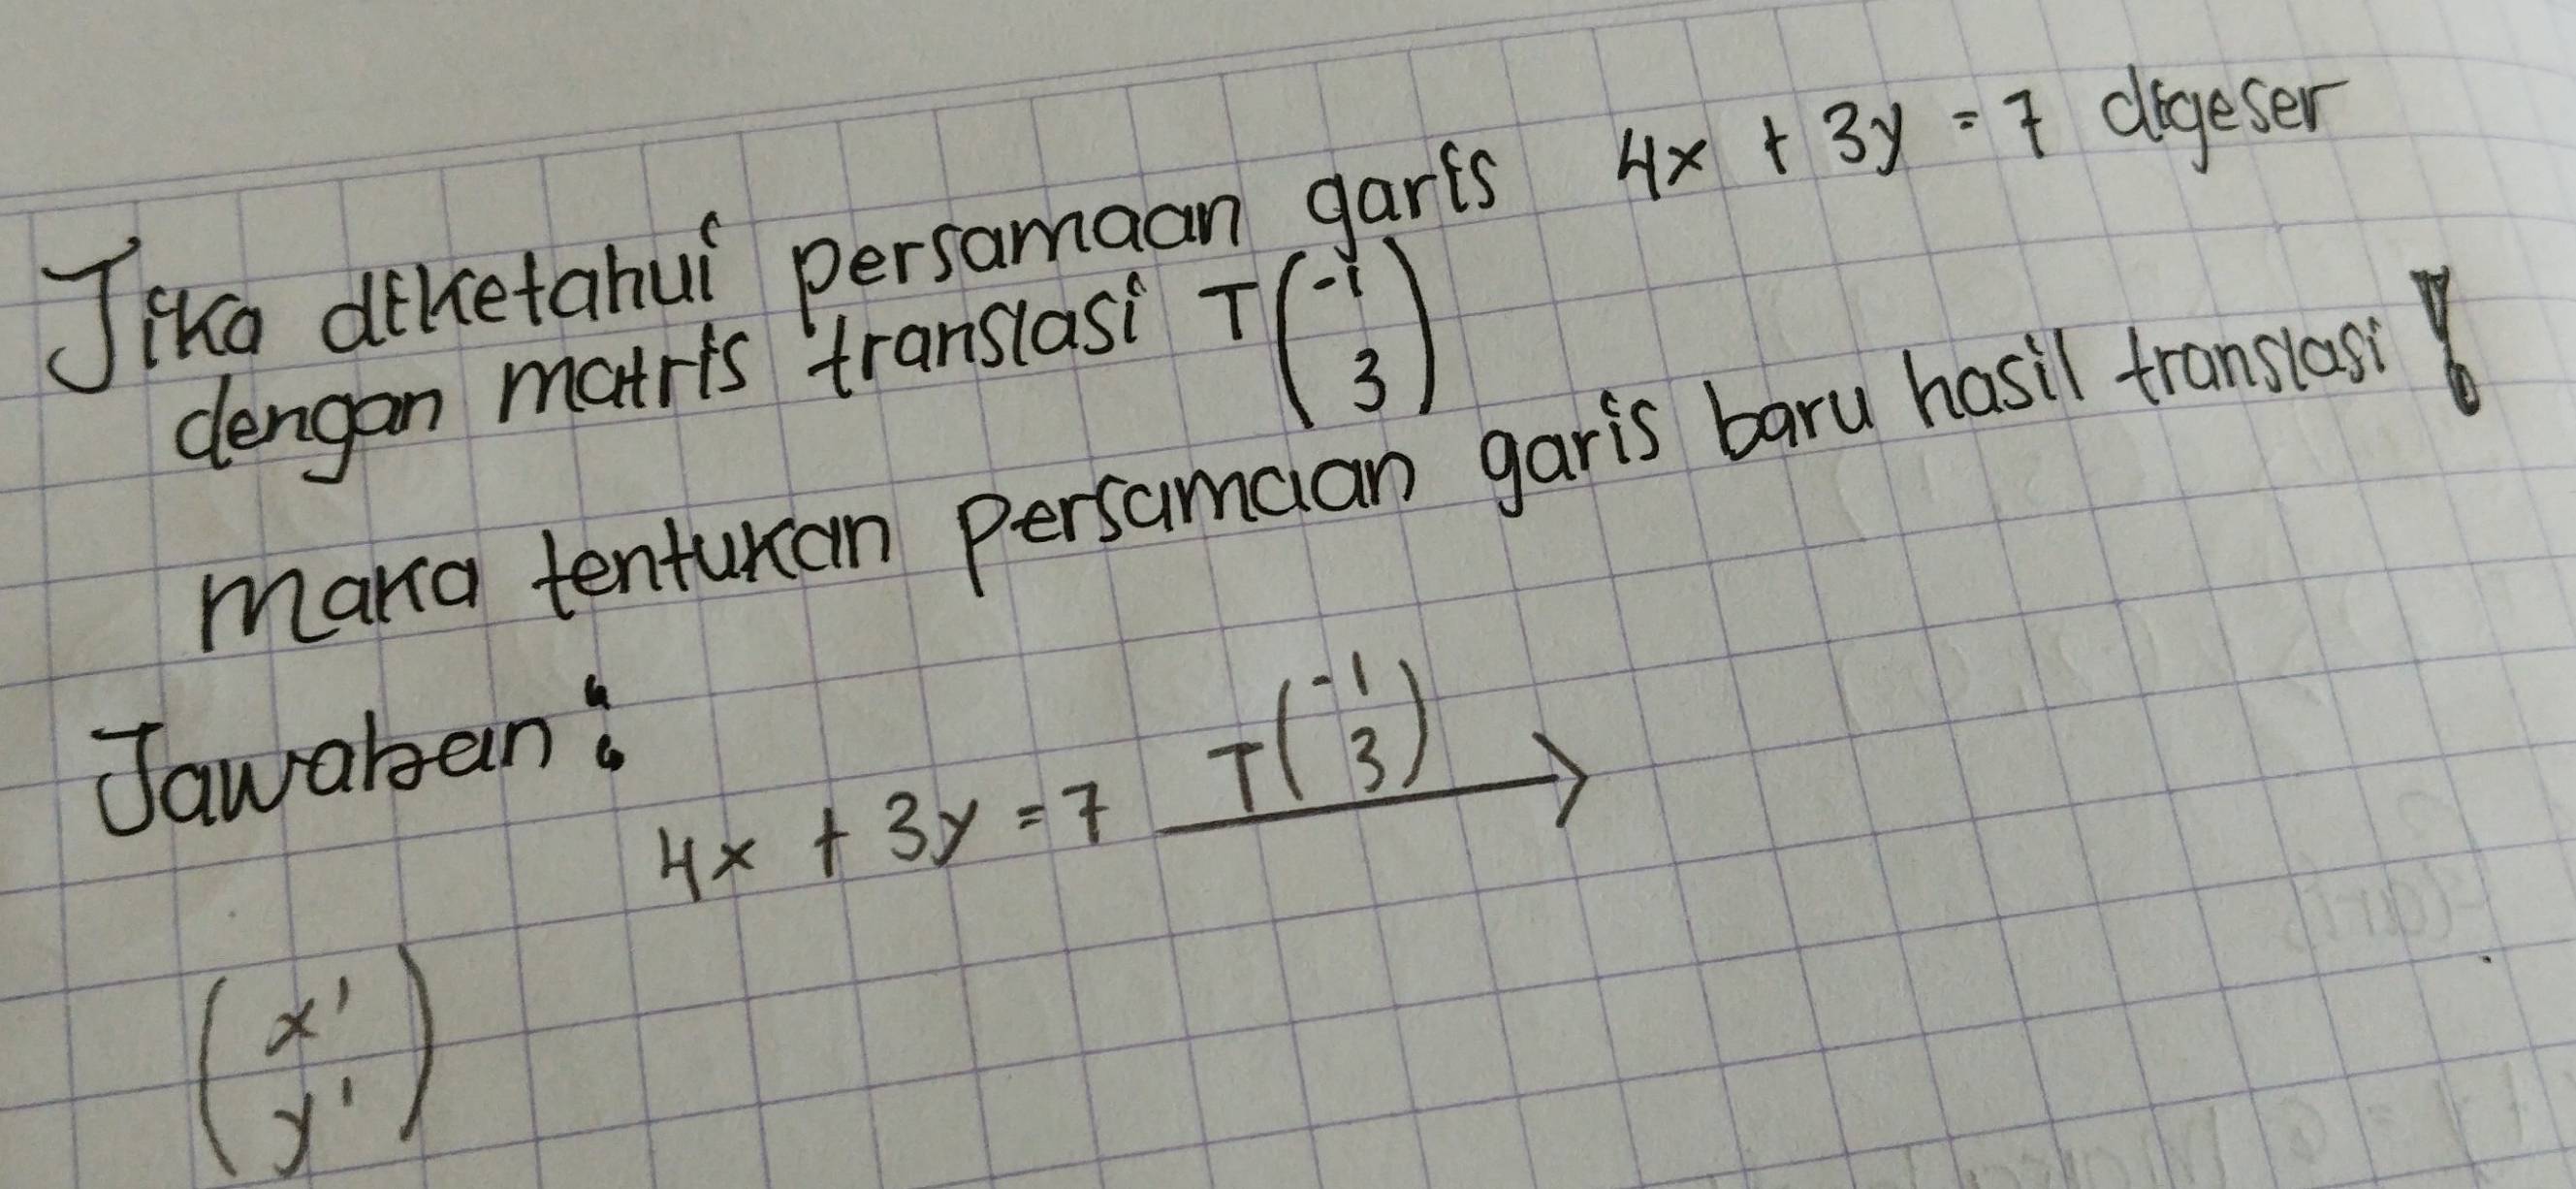 Jika diketahui persamaan garis 4x + 3y = 7 digeser
dengan matris translasi T(-1
3)
maka tentukan persamaan garis baru hasil translasi !
Jawaban :
4x + 3y = 7 T(-1
3) →
(x'
y')